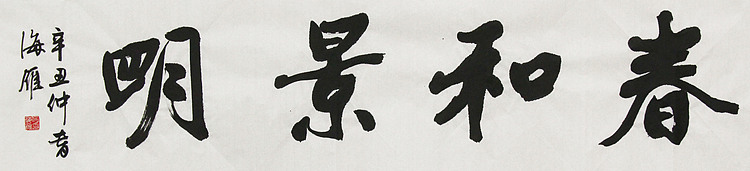 春和景明
辛丑仲春
海雁